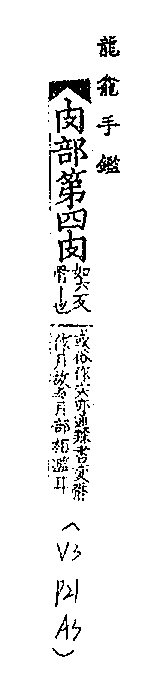 龍龕手鑑
肉部第四肉
如六反
骨丨也
或俗作宍亦通隸書變
作月故与月部相濫耳
(V3
P21
A3)